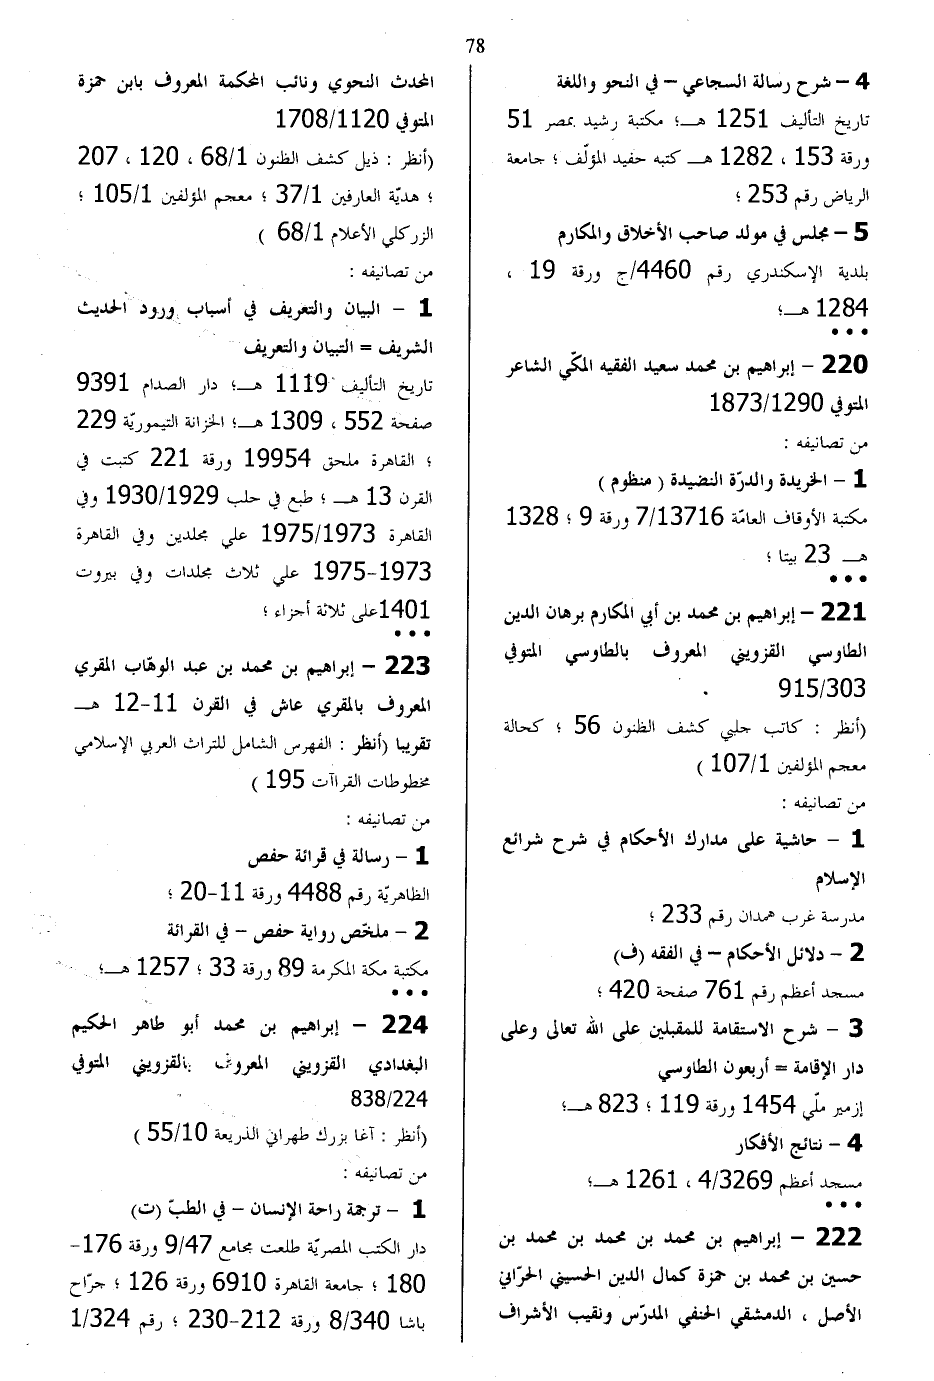 78
4 – شرح رسالة السجاعي – في النحو واللغة
تاريخ التأليف 1251 هـ؛ مكتبة رشيد بمصر 51
ورقة 153 ، 1282 هـ كتبه حفيد المؤلّف ؛ جامعة
الرياض رقم 253 ؛
5 – مجلس في مولد صاحب الأخلاق والمكارم
بلدية الإسكندري رقم 4460/ج ورقة 19 ،
1284 هـ؛
•••
220 – إبراهيم بن محمد سعيد الفقيه المكّي الشاعر
المتوفي 1873/1290
من تصانيفه :
1 – الخريدة والدرّة النضيدة ( منظوم )
مكتبة الأوقاف العامّة 7/13716 ورقة 9 ؛ 1328
هـ 23 بيتا ؛
•••
221 – إبراهيم بن محمد بن أبي المكارم برهان الدين
الطاوسي القزويني المعروف بالطاوسي المتوفي
915/303
(أنظر : كاتب جلبي كشف الظنون 56 ؛ كحالة
معجم المؤلفين 107/1 )
من تصانيفه :
1 – حاشية على مدارك الأحكام في شرح شرائع
الإسلام
مدرسة غرب همدان رقم 233 ؛
2 – دلائل الأحكام – في الفقه (ف)
مسجد أعظم رقم 761 صفحة 420 ؛
3 – شرح الاستقامة للمقبلين على الله تعالى وعلى
دار الإقامة = أربعون الطاوسي
إزمير ملّي 1454 ورقة 119 ؛ 823 هـ؛
4 – نتائج الأفكار
مسجد أعظم 4/3269 ، 1261 هـ؛
•••
222 – إبراهيم بن محمد بن محمد بن محمد بن محمد بن
حسين بن محمد بن حمزة كمال الدين الحسيني الحرّاني
الأصل ، الدمشقي الحنفي المدرّس ونقيب الأشراف
المحدث النحوي ونائب المحكمة المعروف بابن حمزة
المتوفي 1708/1120
(أنظر : ذيل كشف الظنون 68/1 ، 120 ، 207
؛ هديّة العارفين 37/1 ؛ معجم المؤلفين 105/1 ؛
الزركلي الأعلام 68/1 )
من تصانيفه :
1 – البيان والتعريف في أسباب ورود الحديث
الشريف = التبيان والتعريف
تاريخ التأليف 1119 هـ؛ دار الصدام 9391
صفحة 552 ، 1309 هـ؛ الخزانة التيموريّة 229
؛ القاهرة ملحق 19954 ورقة 221 كتبت في
القرن 13 هـ ؛ طبع في حلب 1930/1929 وفي
القاهرة 1975/1973 علي مجلدين وفي القاهرة
1973-1975 علي ثلاث مجلدات وفي بيروت
1401على ثلاثة أجزاء ؛
•••
223 – إبراهيم بن محمد بن عبد الوهّاب المقري
المعروف بالمقري عاش في القرن 11-12 هـ
تقريبا (أنظر : الفهرس الشامل للتراث العربي الإسلامي
مخطوطات القراآت 195 )
من تصانيفه :
1 – رسالة في قرائة حفص
الظاهريّة رقم 4488 ورقة 11-20 ؛
2 – ملخّص رواية حفص – في القرائة
مكتبة مكة المكرمة 89 ورقة 33 ؛ 1257 هـ؛
•••
224 – إبراهيم بن محمد أبو طاهر الحكيم
البغدادي القزويني المعروف بالقزويني المتوفي
838/224
(أنظر : آغا بزرك طهراني الذريعة 55/10 )
من تصانيفه :
1 – ترجمة راحة الإنسان – في الطبّ (ت)
دار الكتب المصريّة طلعت مجامع 9/47 ورقة 176-
180 ؛ جامعة القاهرة 6910 ورقة 126 ؛ جرّاح
باشا 8/340 ورقة 212-230 ؛ رقم 1/324